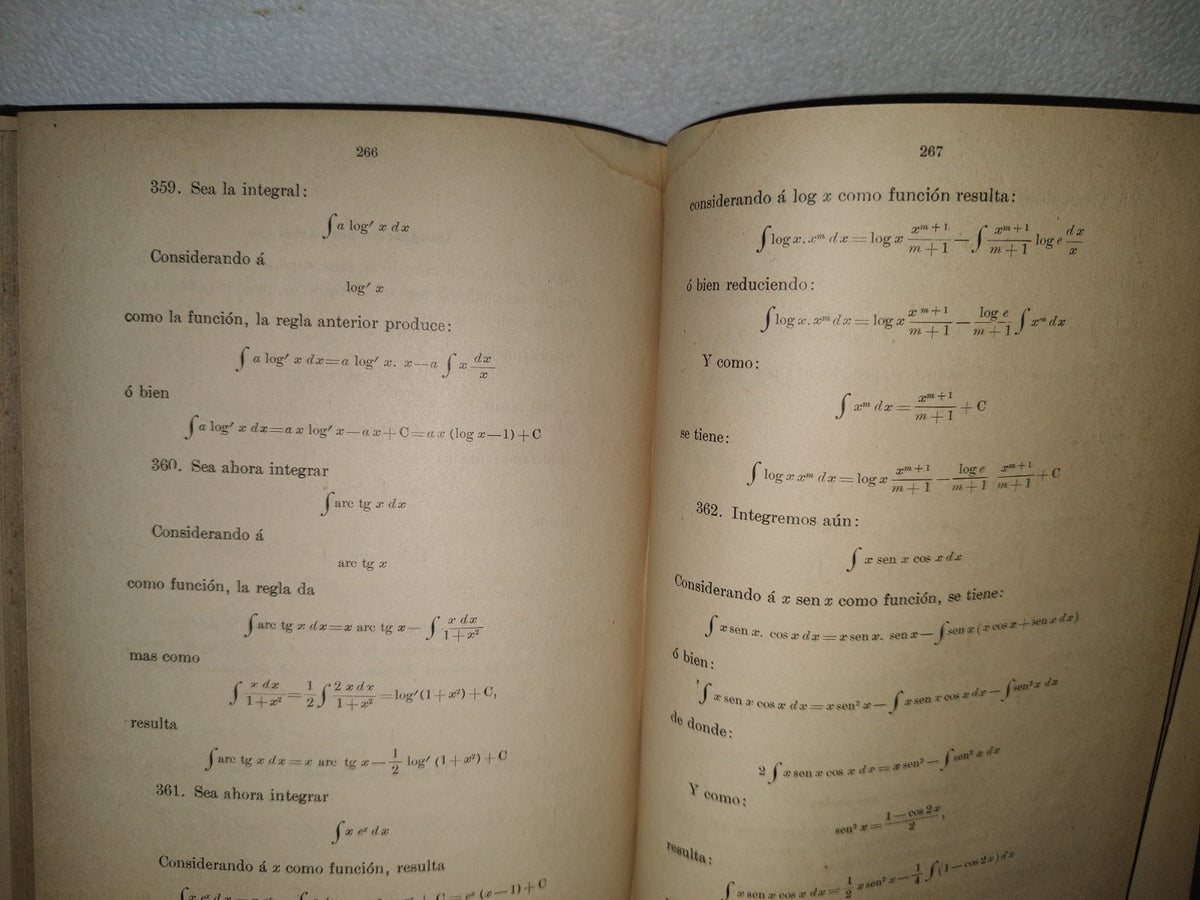 266
359. Sea la integral:
∫ a log′ x dx
Considerando á
log′ x
como la función, la regla anterior produce:
∫ a log′ x dx=a log′ x. x—a ∫ x dx/x
ó bien
∫ a log′ x dx=a x log′ x—a x+C=a x (log x—1)+C
360. Sea ahora integrar
∫ arc tg x dx
Considerando á
arc tg x
como función, la regla da
∫ arc tg x dx=x arc tg x— ∫ x dx/1+x²
mas como
∫ x dx/1+x² = 1/2 ∫ 2 x dx/1+x² =log′(1+x²)+C,
resulta
∫ arc tg x dx=x arc tg x— 1/2 log′ (1+x²)+C
361. Sea ahora integrar
∫ x eˣ dx
Considerando á x como función, resulta
C=eˣ (x—1)+C
267
considerando á log x como función resulta:
∫ log x. xᵐ dx=log x xᵐ⁺¹/m+1 — ∫ xᵐ⁺¹/m+1 log e dx/x
ó bien reduciendo:
∫ log x. xᵐ dx=log x xᵐ⁺¹/m+1 — log e/m+1 ∫ xᵐ dx
Y como:
∫ xᵐ dx= xᵐ⁺¹/m+1 +C
se tiene:
∫ log x xᵐ dx=log x xᵐ⁺¹/m+1 — log e/m+1 xᵐ⁺¹/m+1 +C
362. Integremos aún:
∫ x sen x cos x dx
Considerando á x sen x como función, se tiene:
∫ x sen x. cos x dx=x sen x. sen x— ∫ sen x (x cos x+sen x dx)
ó bien:
∫ x sen x cos x dx=x sen² x— ∫ x sen x cos x dx— ∫ sen² x dx
de donde:
2 ∫ x sen x cos x dx=x sen²— ∫ sen² x dx
Y como:
sen² x= 1—cos 2x/2,
resulta:
∫ x sen x cos x dx= 1/2 x sen² x— 1/4 ∫ (1—cos 2x) dx